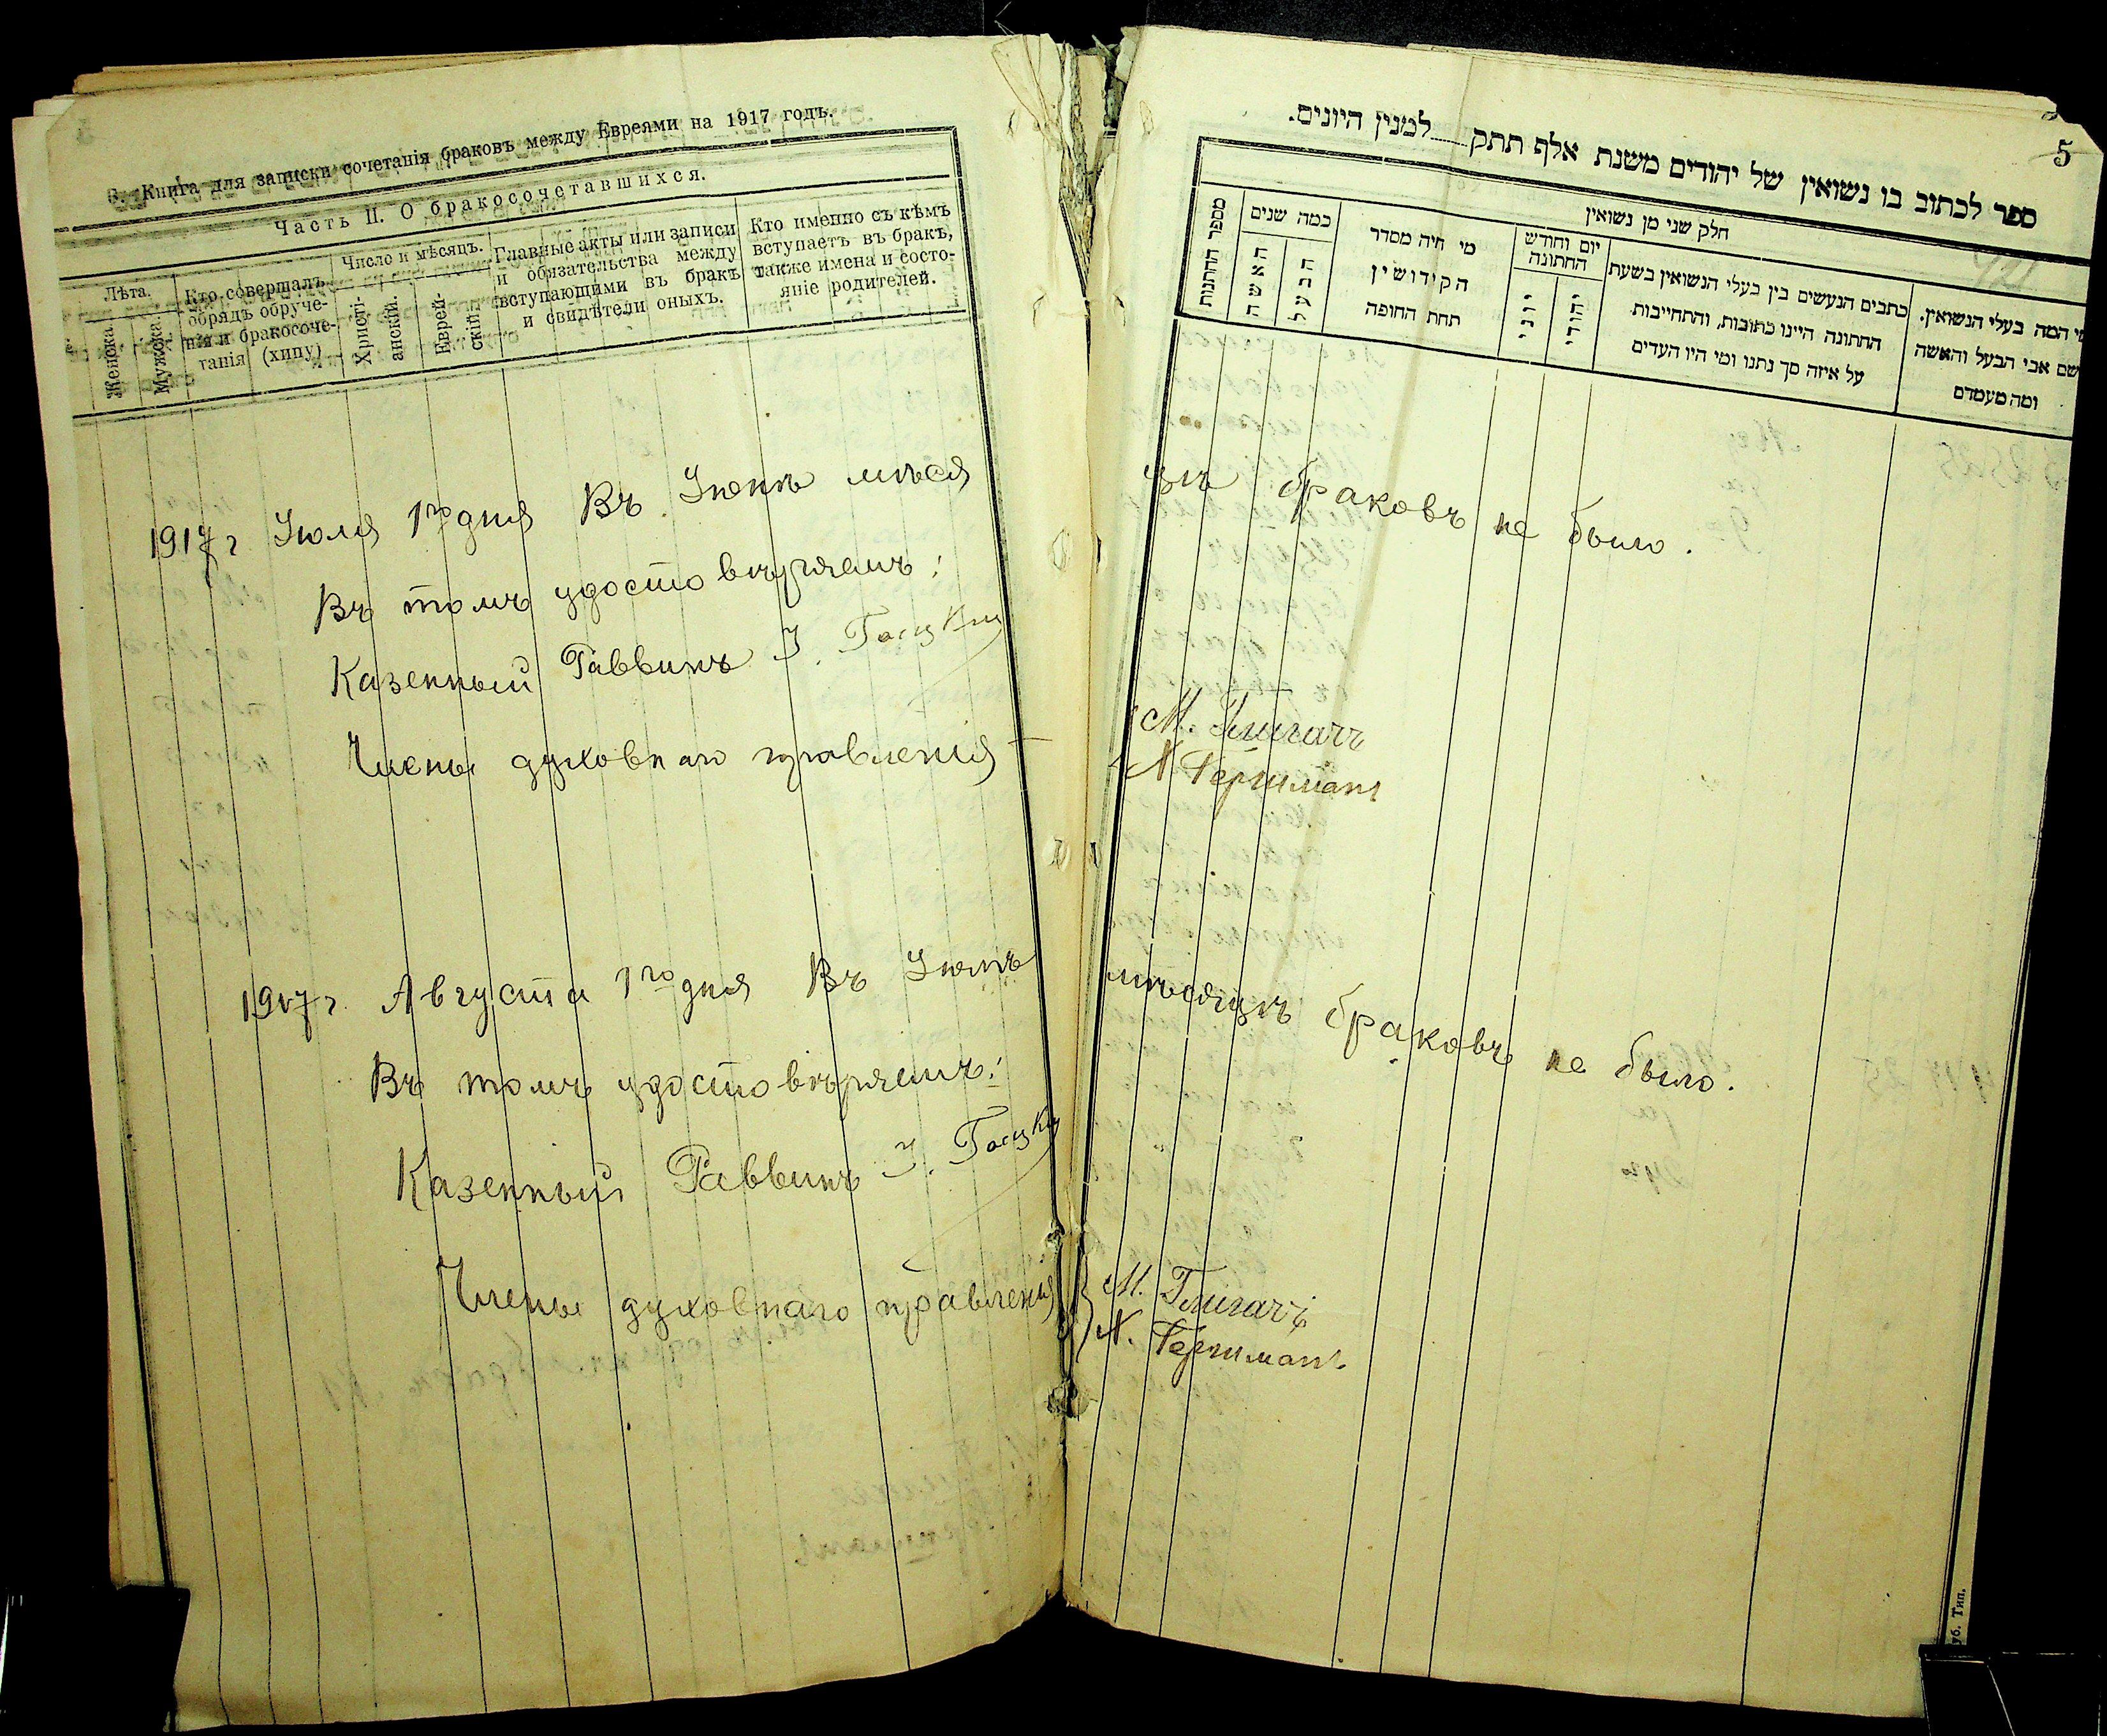 6. Книга для записки сочетанія браковъ между Евреями на 1917 годъ.
Часть II. О бракосочетавшихся.
Лѣта.
Женска.
Мужска.
Кто совершалъ
обрядъ обруче-
нія и бракосоче-
танія (хипу)
Число и мѣсяцъ.
Христі-
анскій.
Еврей-
скій.
Главные акты или записи
и обязательства между
вступающими въ бракъ
и свидѣтели оныхъ.
Кто именно съ кѣмъ
вступаетъ въ бракъ,
также имена и состо-
яніе родителей.
1917 г Іюля 1го дня Въ Іюнѣ мѣся
Въ томъ удостовѣряемъ:
Казенный Раввинъ І.
Члены духовнаго правленія
1917 г. Августа 1го дня Въ Іюлѣ
Въ томъ удостовѣряемъ:
Казенный Раввинъ І.
Члены духовнаго правленія
5
ספר לכתוב בו נשואין של יהודים משנת אלף תתק למנין היונים.
חלק שני מן נשואין
מספר החתונות
כמה שנים
האשה
הבעל
מי היה מסדר
הקידושין
תחת החופה
יום וחודש
החתונה
יוני
יהודי
כתבים הנעשים בין בעלי הנשואין בשעת
החתונה היינו כתובות, והתחייבות
על איזה סך נתנו ומי היו העדים
מי המה בעלי הנשואין.
שם אבי הבעל והאשה
ומה מעמדם
цѣ браковъ не было.
М.
Н. Гершманъ
мѣсяцѣ браковъ не было.
М.
Н. Гершманъ
уб. Тип.